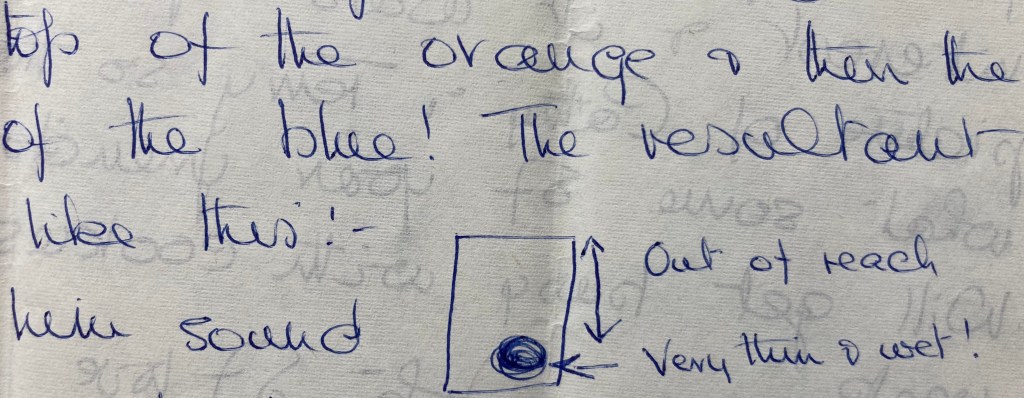 top of the orange & then the
of the blue! The resultant
like this:-
Out of reach
him sound
Very thin & wet!